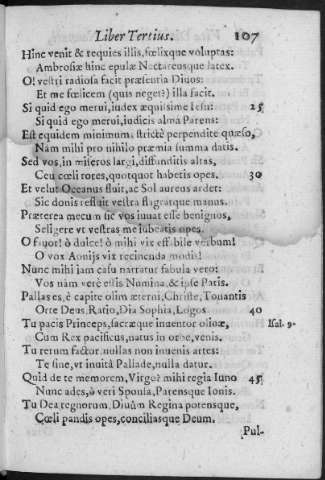 Liber Tertius. 107
Hinc venit & requies illis, fœlixque voluptas:
Ambrosiæ hinc epulæ Nectareusque latex.
O! vestri radiosa facit præsentia Diuos:
Et me fœlicem (quis neget?) illa facit.
Si quid ego merui, iudex æquissime Iesu: 25
Si quid ego merui, iudicis alma Parens:
Est equidem minimum, strictè perpendite quæso,
Nàm mihi pro nihilo præmia summa datis.
Sed vos, in miseros largi, diffunditis altas,
Ceu cœli rores, quotquot habetis opes. 30
Et velut Oceanus fluit, ac Sol aureus ardet:
Sic donis fluit vestra flagratque manus.
Præterea mecum sic vos iuuat esse benignos,
Seligere vt vestras me iubeatis opes.
O fauor! ò dulce! ò mihi vix effabile verbum!
O vox Aonijs vix recinenda modis!
Nunc mihi iam casu narratur fabula vero:
Vos nàm verè estis Numina, & ipse Paris.
Pallas es, è capite olim æterni, Christe, Tonantis
Orte Deus, Ratio, Dia Sophia, Logos 40
Tu pacis Princeps, sacræque inuentor oliuæ, Isai. 9.
Cum Rex pacificus, natus in orbe, venis.
Tu rerum factor, nullas non inuenis artes:
Te sine, vt inuitâ Pallade, nulla datur.
Quid de te memorem, Virgo? mihi regia Iuno 45
Nunc ades, ô veri Sponsa, Parensque Iouis.
Tu Dea regnorum, Diuûm Regina potensque,
Cœli pandis opes, conciliasque Deum.
Pul-